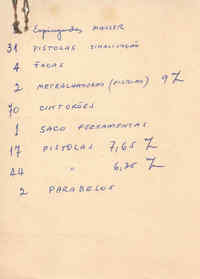 Espingardas MAUSER
31 PISTOLAS SINALIZAÇÃO
4 FACAS
2 METRALHADORAS (PISTOLAS) 9
70 CINTORÕES
1 SACO FERRAMENTAS
17 PISTOLAS 7,65
44 " 6,35
2 PARABELOS